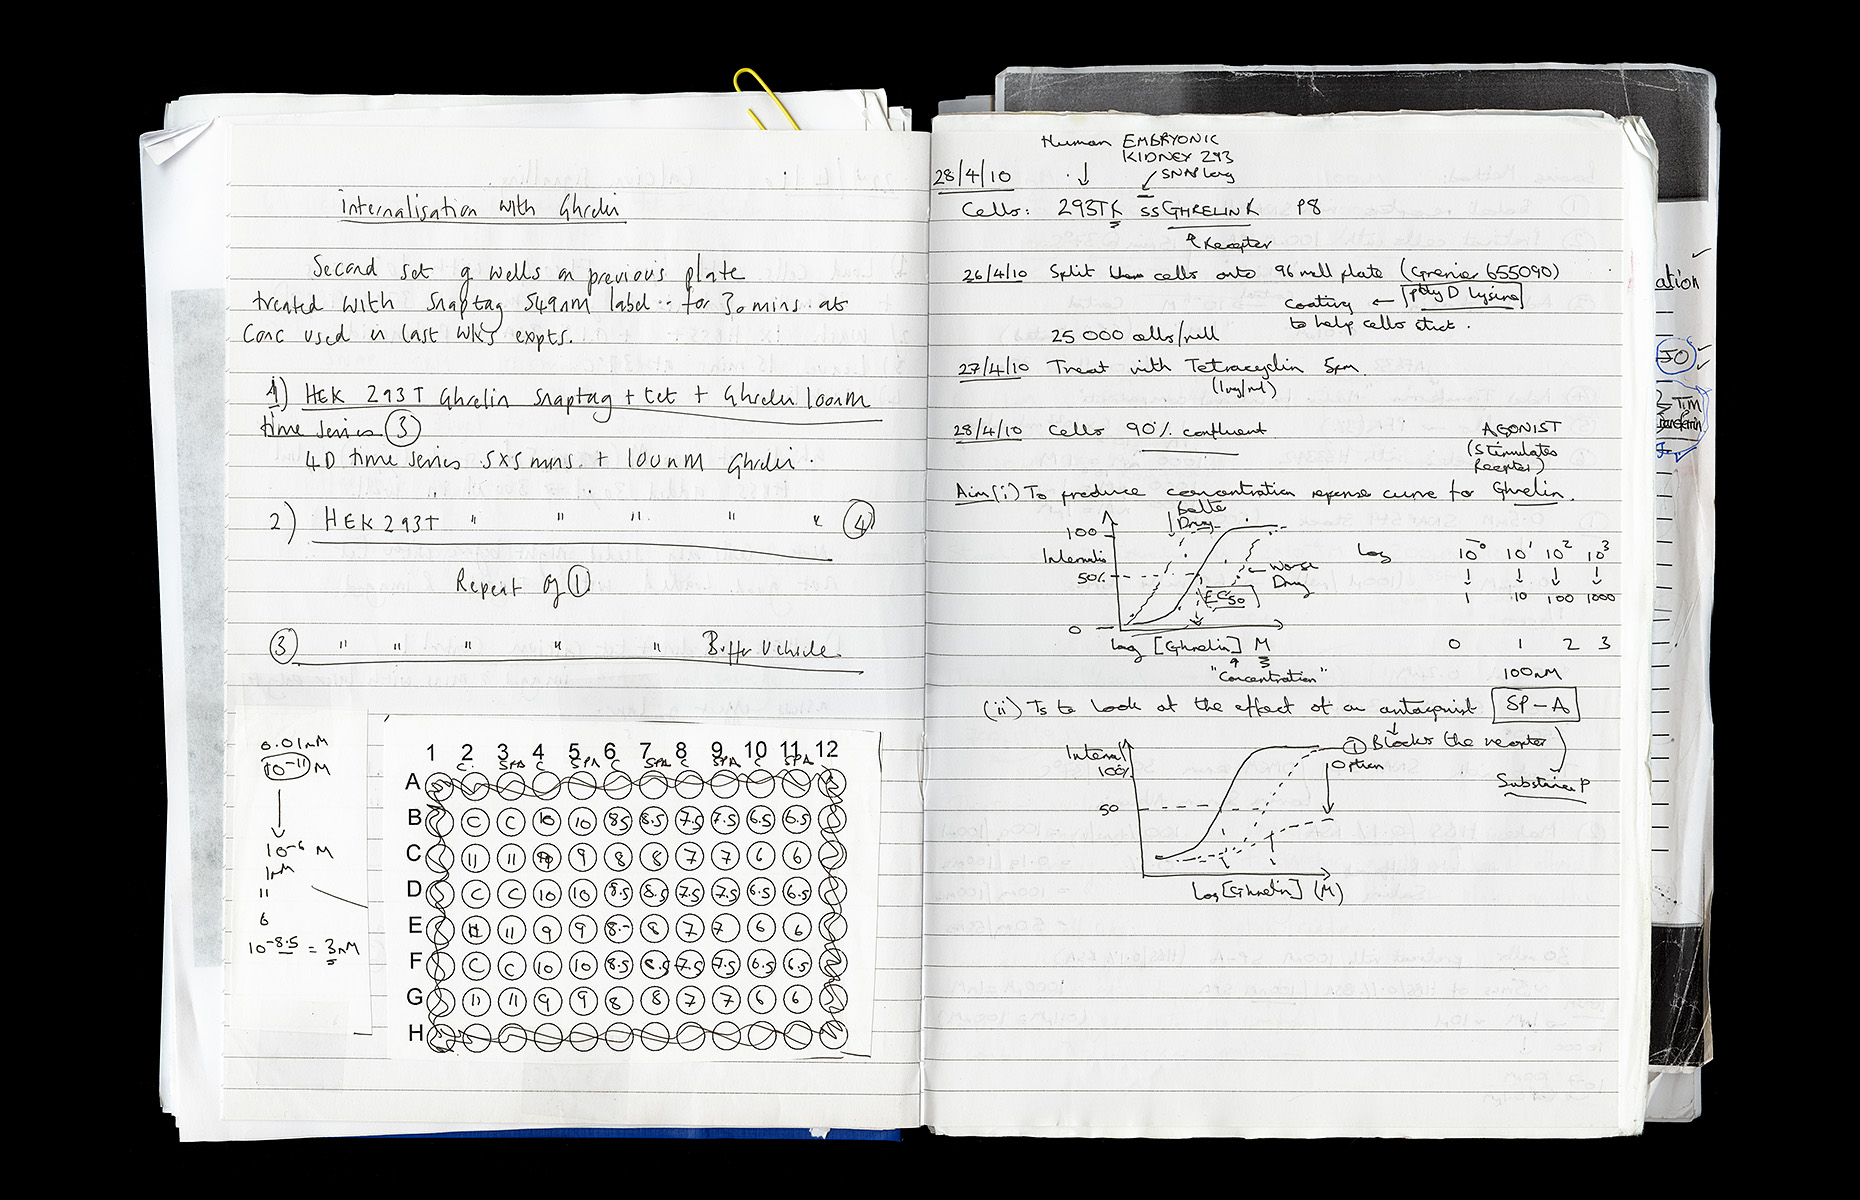 internalisation with Ghrelin
Second set of wells on previous plate
treated with Snaptag 549nm label for 30 mins at
conc used in last wk's expts.
1) HEK 293T Ghrelin Snaptag + tet + Ghrelin 100nM
time series (3)
4D time series 5x5 mins. + 100nM Ghrelin.
2) HEK 293T " " " " " (4)
Repeat of (1)
(3) " " " " " Buffer Vehicle
0.01nM
10^-11 M
10^-6 M
1μM
11
6
10^-8.5 = 3nM
1 2 3 4 5 6 7 8 9 10 11 12
C SPA C SPA C SPA C SPA C SPA
A
B C C 10 10 8.5 8.5 7.5 7.5 6.5 6.5
C 11 11 9 8 8 7 7 6 6
D C C 10 10 8.5 8.5 7.5 7.5 6.5 6.5
E 11 11 9 9 8 7 7 6 6
F C C 10 10 8.5 8.5 7.5 7.5 6.5 6.5
G 11 11 9 9 8 8 7 7 6 6
H
Human EMBRYONIC
KIDNEY 293
28/4/10
SNAP tag
Cells: 293TR SSGHRELINR P8
Receptor
26/4/10 Split cells onto 96 well plate (Grenier 655090)
coating ← Poly D Lysine
to help cells stick.
25 000 cells/well
27/4/10 Treat with Tetracyclin 5μm
(1ug/ml)
28/4/10 Cells 90% confluent
AGONIST
(Stimulates
Receptor)
Aim (i) To produce concentration reponse curve for Ghrelin.
Drug
100
50%
Worse
Drug
EC50
0
log [Ghrelin] M
"Concentration"
Log 10^0 10^1 10^2 10^3
1 10 100 1000
0 1 2 3
100nM
(ii) Ts to look at the effect of an antagonist SP-A
Internal
100%
(1) Blocks the receptor
Option
Substance P
50
Log [Ghrelin] (M)
ation
JO
TIM